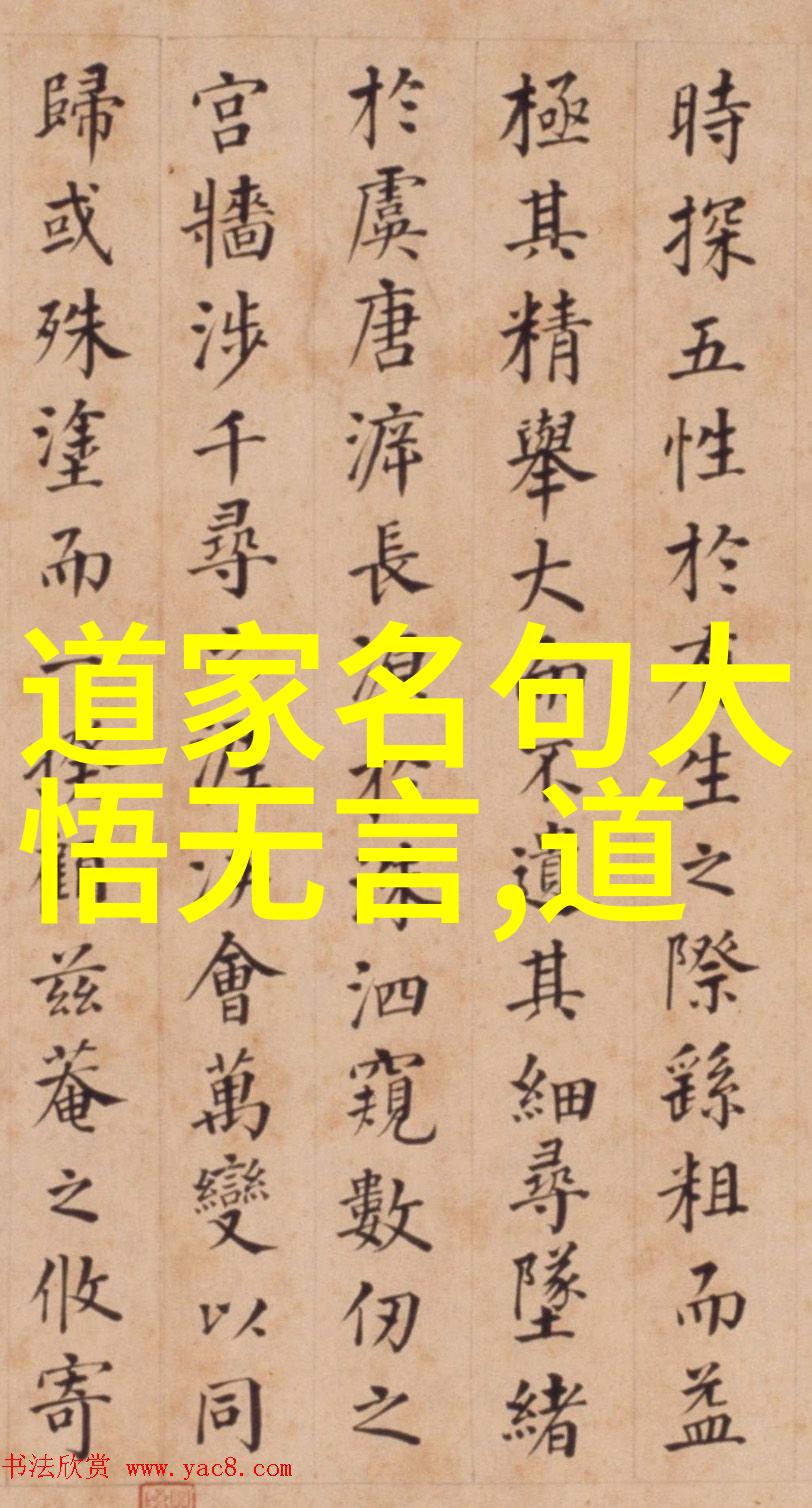 時探五性於有生之際繇粗而益
極其精舉大而不遺其細尋墜緒
於虞唐長源於洙泗窺數仞之
宮牆涉千尋之涯涘會萬變以同
歸或殊塗而一揆顧兹菴之攸寄
道家名句大
悟无言,道
书法欣赏 www.yac8.com